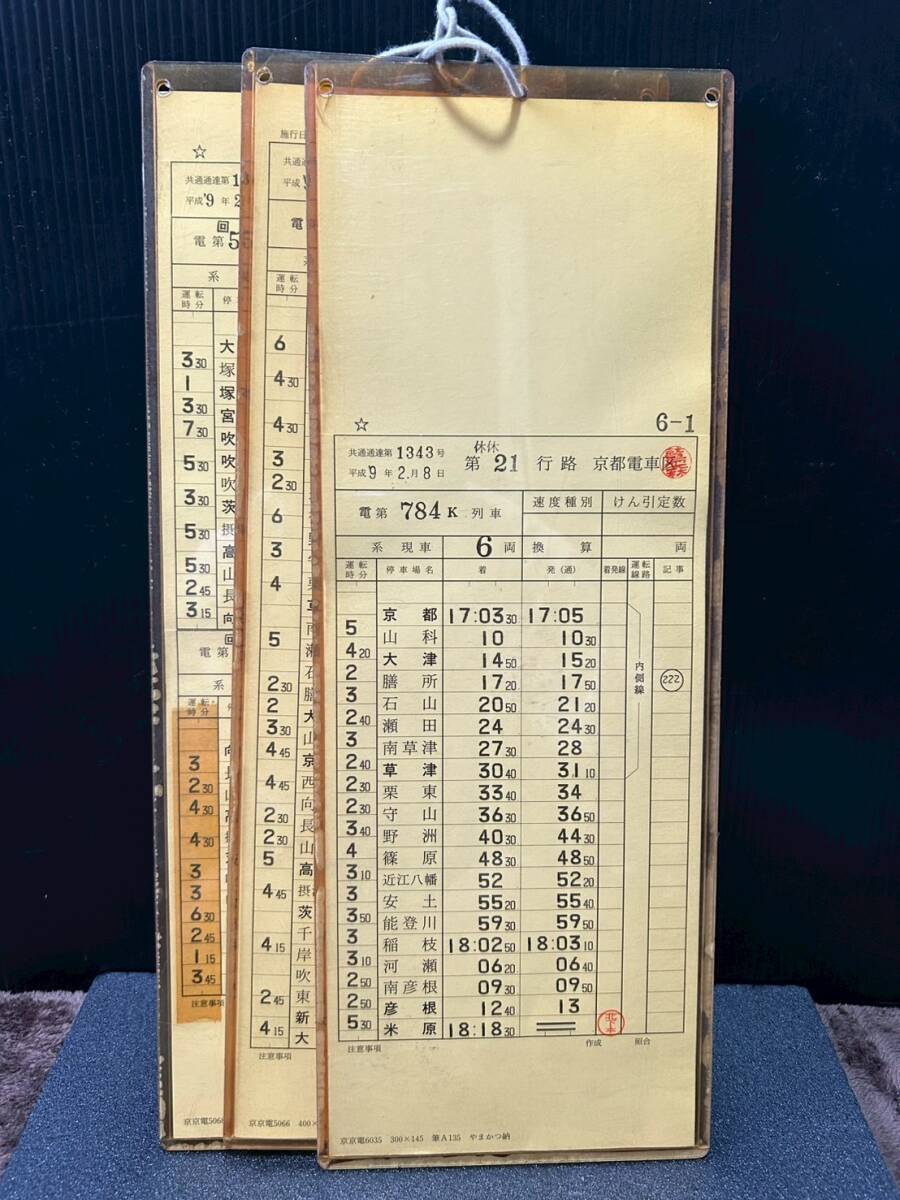 ☆
共通通達第1
平成9年2
回
電第5
系
運転時分 停
大
3 30 塚
1 塚
3 30 宮
7 30 吹
吹
5 30 吹
3 30 茨
摂
5 30 高
5 30 山
2 45 長
3 15 向
回
電第
系
運転時分
向
3
2 30
4 30
4 30
3
3
6 30
2 45
1 15
3 45
注意事項
京京電506
施行日
共通通
平成9
電
運転時分
6
4 30
4 30
3
2 30
6
3
4
草
南
5 瀬
石
2 30 膳
2 大
3 30 山
4 45 京
西
4 45 向
2 30 長
2 30 山
5 高
4 45 摂
茨
千
4 15 岸
吹
2 45 東
新
4 15 大
注意事項
京京電5066 400×
☆ 6-1
共通通達第1343号
平成9年2.月8日
休休
第21行路 京都電車区
電第784K列車 速度種別 けん引定数
系 現車 6両 換算 両
運転時分 停車場名 着 発(通) 着発線 運転線路 記事
京都 17:03 30 17:05
5
山科 10 10 30
4 20
大津 14 50 15 20
2
膳所 17 20 17 50
3
石山 20 50 21 20
2 40
瀬田 24 24 30
3
南草津 27 30 28
2 40
草津 30 40 31 10
2 30
栗東 33 40 34
2 30
守山 36 30 36 50
3 40
野洲 40 30 44 30
4
篠原 48 30 48 50
3 10
近江八幡 52 52 20
3
安土 55 20 55 40
3 50
能登川 59 30 59 50
3
稲枝 18:02 50 18:03 10
3 10
河瀬 06 20 06 40
2 50
南彦根 09 30 09 50
2 50
彦根 12 40 13
5 30
米原 18:18 30
内側線
222
注意事項 作成 照合
京京電6035 300×145 筆A135 やまかつ納